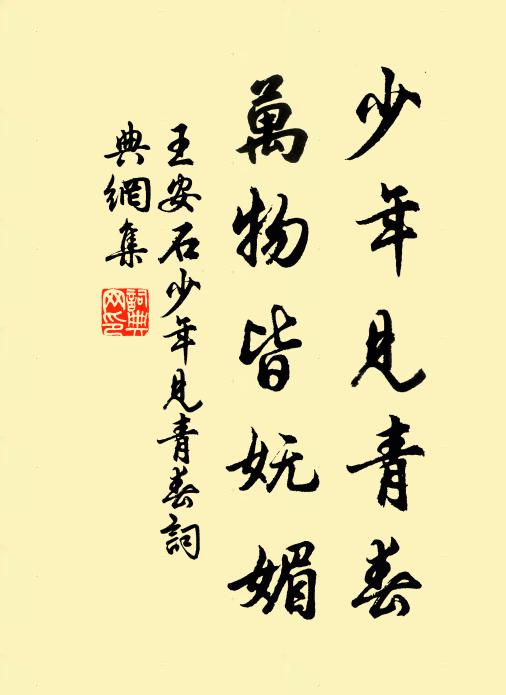 少年見青春
萬物皆妩媚
王安石少年見青春詞
典網集
詞典
网印